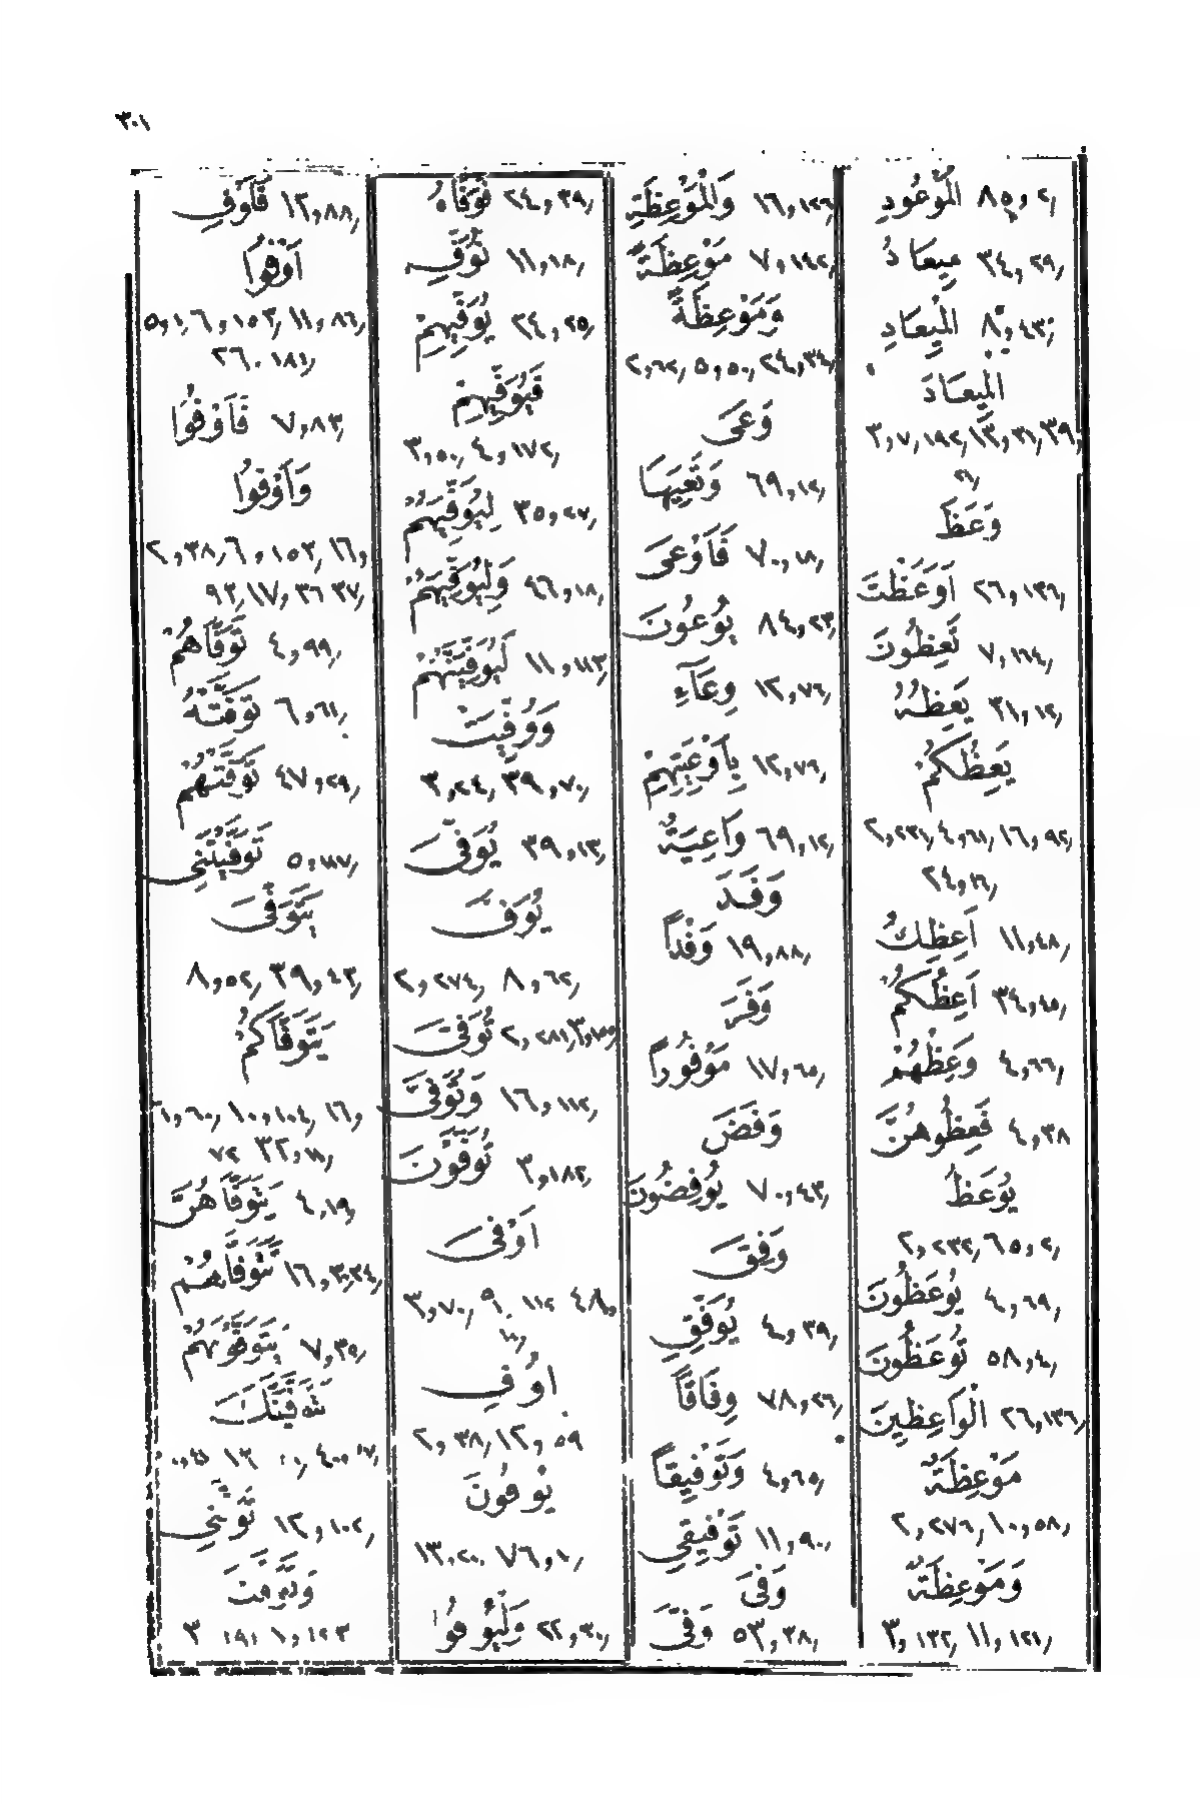 ٣٠١
الْمَوْعُودِ ٨٥,٢٫
مِيعَادُ ٣٤,٢٩٫
الْمِيعَادِ ٨,٤٣٫
الْمِيعَادَ
٣,٧,١٩٢٫ ١٣,٣١٫ ٣٩,
٢١٫
وَعَظَ
اَوَعَظْتَ ٢٦,١٣٦٫
تَعِظُونَ ٧,١٦٤٫
يَعِظُهُ ٣١,١٢٫
يَعِظُكُمْ
٢,٢٣١٫ ٤,٦١٫ ١٦,٩٢٫
٢٤,١٦٫
اَعِظُكَ ١١,٤٨٫
اَعِظُكُمْ ٣٤,٤٥٫
وَعِظْهُمْ ٤,٦٦٫
فَعِظُوهُنَّ ٤,٣٨
يُوعَظُ
٢,٢٣٢٫ ٦٥,٢٫
يُوعَظُونَ ٤,٦٩٫
تُوعَظُونَ ٥٨,٤٫
الْوَاعِظِينَ ٢٦,١٣٦٫
مَوْعِظَةٌ
٢,٢٧٦٫ ١٠,٥٨٫
وَمَوْعِظَةٌ
٣,١٣٢٫ ١١,١٢١٫
وَالْمَوْعِظَةِ ١٦,١٢٦٫
مَوْعِظَةً ٧,١٤٢٫
وَمَوْعِظَةً
٢,٦٢٫ ٥,٥٠٫ ٢٤,٣٤٫
وَعَى
وَتَعِيَهَا ٦٩,١٢٫
فَاَوْعَى ٧٠,١٨٫
يُوعُونَ ٨٤,٢٣٫
وِعَآءِ ١٢,٧٦٫
بِاَوْعِيَتِهِمْ ١٢,٧٦٫
وَاعِيَةٌ ٦٩,١٢٫
وَفَدَ
وَفْداً ١٩,٨٨٫
وَفَرَ
مَوْفُوراً ١٧,٦٥٫
وَفَضَ
يُوفِضُونَ ٧٠,٤٣٫
وَفِقَ
يُوَفِّقِ ٤,٣٩٫
وِفَاقًا ٧٨,٢٦٫
وَتَوْفِيقاً ٤,٦٥٫
تَوْفِيقِي ١١,٩٠٫
وَفَى
وَفّٰى ٥٣,٣٨٫
فَوَفّٰاهُ ٢٤,٣٩٫
نُوَفِّ ١١,١٨٫
يُوَفِّيهِمْ ٢٤,٢٥٫
فَيُوَفِّيهِمْ
٣,٥٠٫ ٤,١٧٢٫
لِيُوَفِّيَهُمْ ٣٥,٢٧٫
وَلِيُوَفِّيَهُمْ ٤٦,١٨٫
لَيُوَفِّيَنَّهُمْ ١١,١١٣٫
وَوُفِّيَتْ
٣,٢٤٫ ٣٩,٧٠٫
يُوَفَّى ٣٩,١٣٫
يُوَفَّ
٢,٢٧٤٫ ٨,٦٢٫
تُوَفَّى ٢,٢٨١٫
وَتُوَفَّى ١٦,١١٢٫
تُوَفَّوْنَ ٣,١٨٢٫
اَوْفَى
٣,٧٠٫ ٩, ١١٢ ٤٨,
اُوفِ
٢,٣٨٫ ١٢,٥٩
يُوفُونَ
١٣,٢٠٫ ٧٦,١٫
وَلْيُوفُوا ٢٢,٣٠٫
فَاَوْفِ ١٢,٨٨٫
اَوْفُوا
٥,١٫ ٦,١٥٢٫ ١١,٨٦٫
٢٦,١٨١٫
فَاَوْفُوا ٧,٨٣٫
وَاَوْفُوا
٢,٣٨٫ ٦,١٥٣٫ ١٦,
٩٢٫ ١٧, ٣٦ ٣٧٫
تَوَفّٰاهُمْ ٤,٩٩٫
تَوَفَّتْهُ ٦,٦١٫
تَوَفَّتْهُمْ ٤٧,٢٩٫
تَوَفَّيْتَنِي ٥,١١٧٫
يَتَوَفَّى
٨,٥٢٫ ٣٩,٤٣٫
يَتَوَفّٰاكُمْ
٦,٦٠٫ ١٠,١٠٤٫ ١٦,
٧٢ ٣٢,١١٫
يَتَوَفّٰاهُنَّ ٤,١٩٫
تَتَوَفّٰاهُمْ ١٦,
يَتَوَفَّوْنَهُمْ ٧,٣٥٫
نَتَوَفَّيَنَّكَ
تَوَفَّنِي ١٢,١٠٢٫
وَتَوَفَّنَا